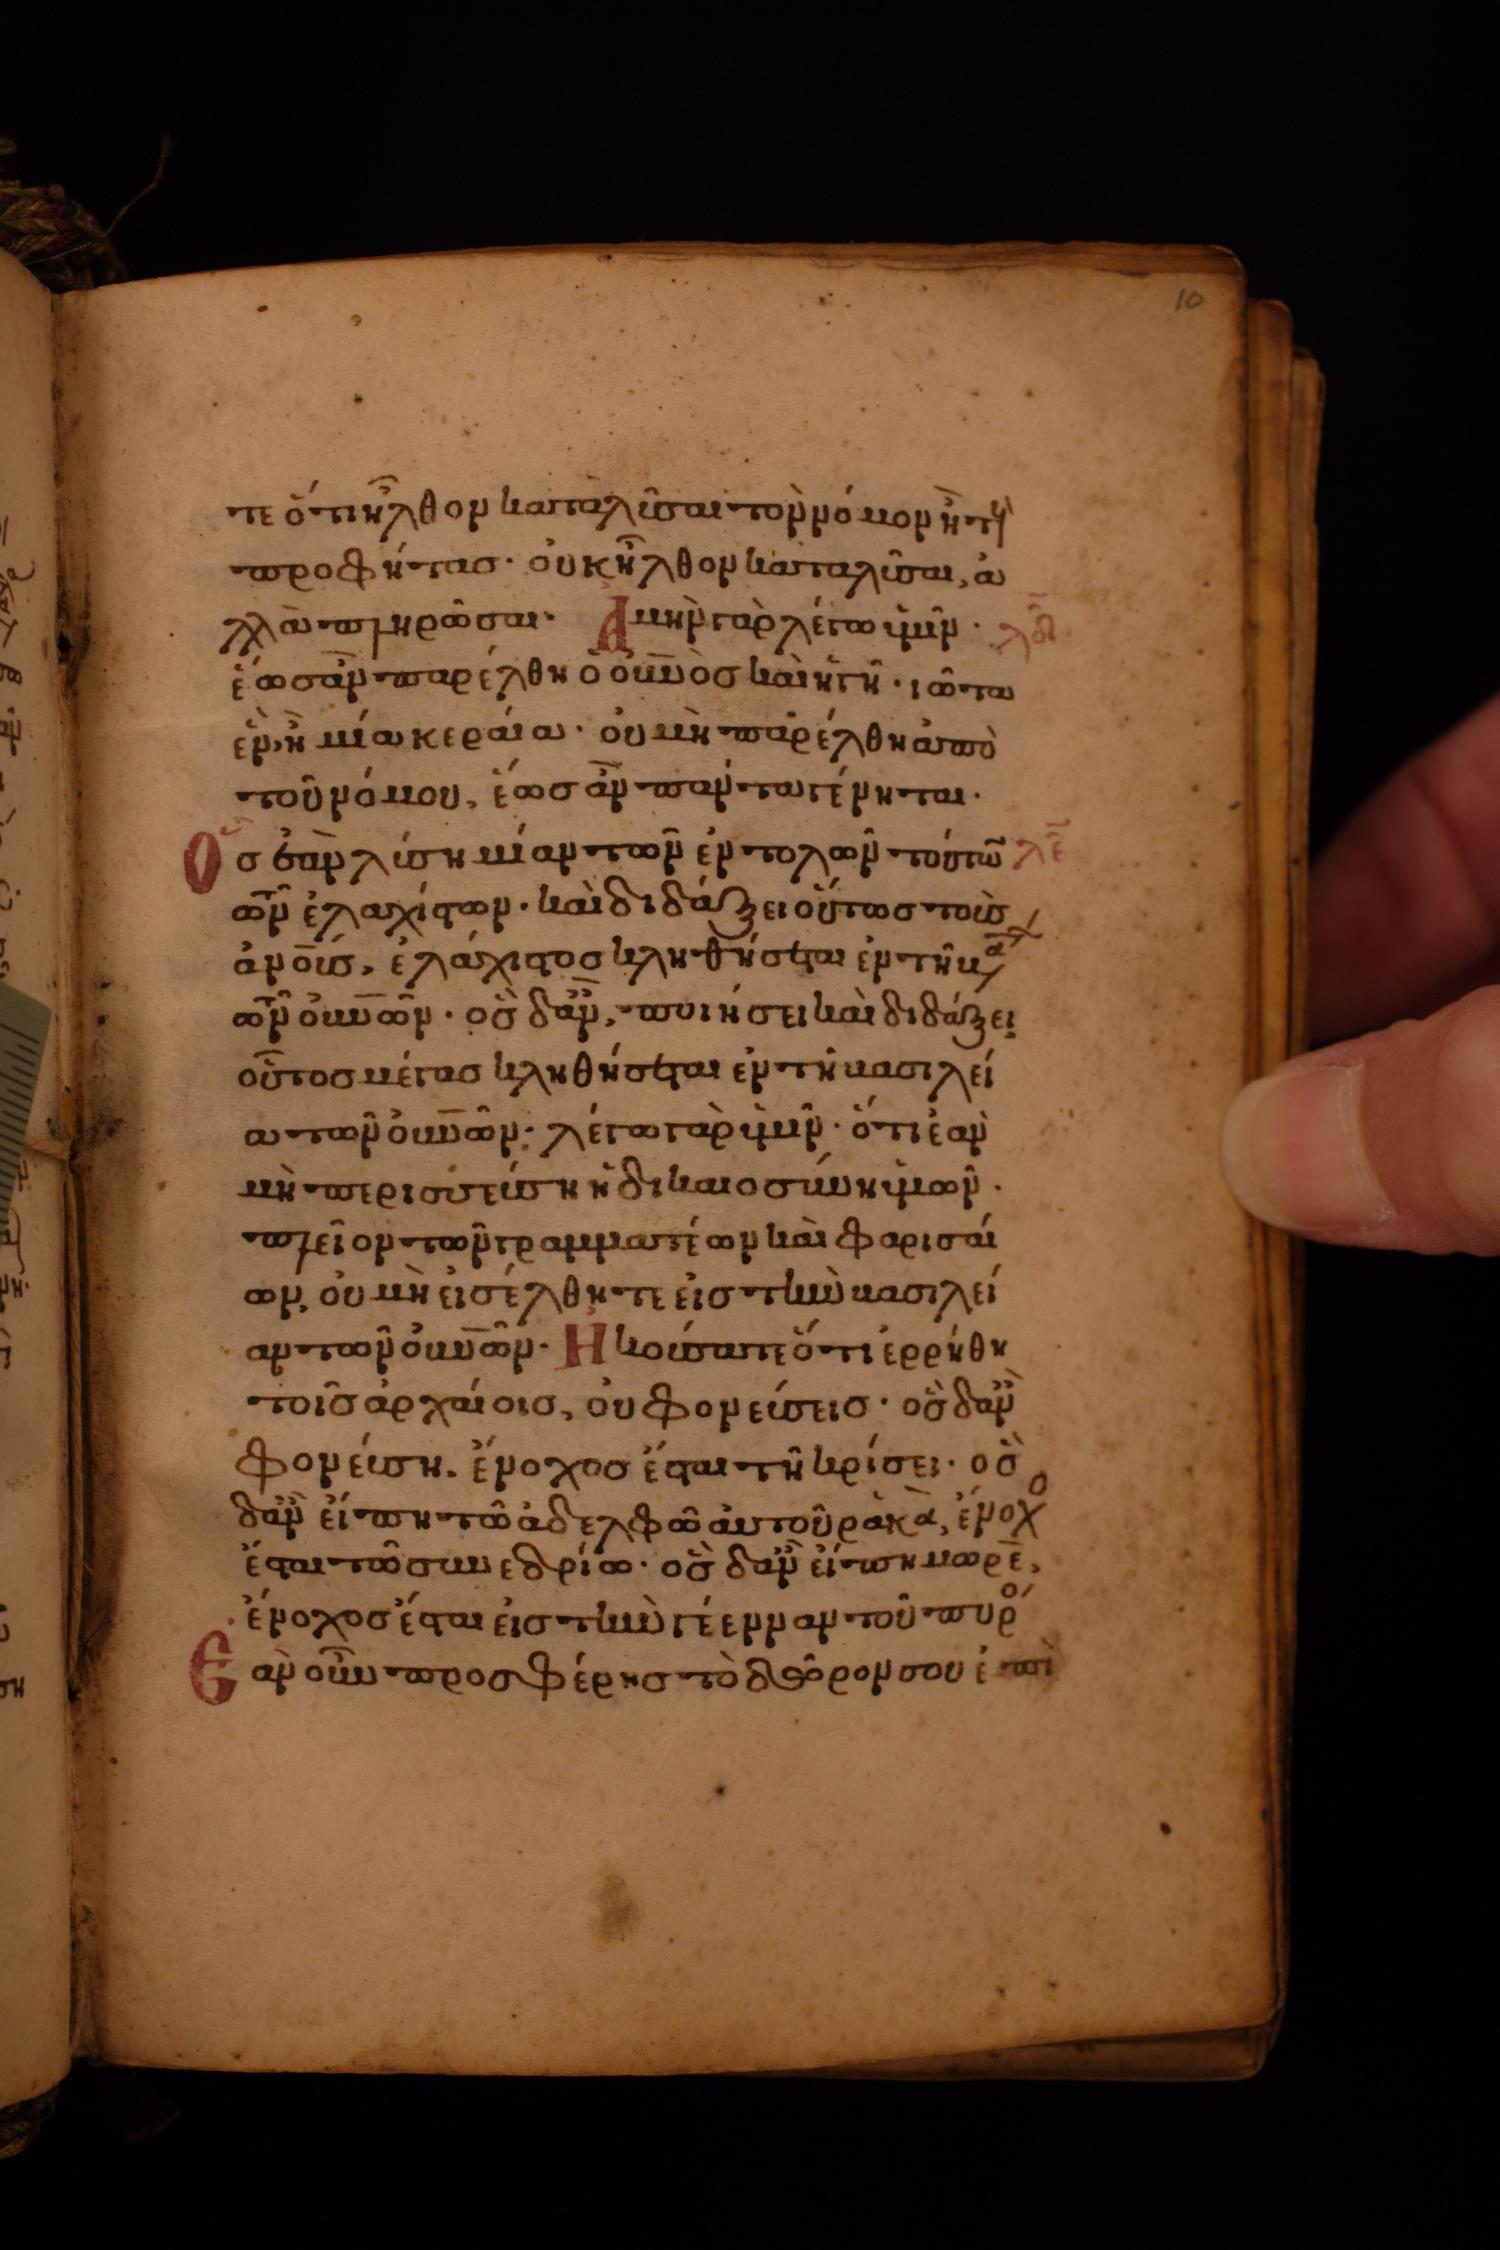 10
τε ὅτι ἦλθον καταλῦσαι τὸν νόμον ἢ τ(οὺς)
προφήτασ· οὐκ ἦλθον καταλῦσαι, ἀ
λλὰ πληρῶσαι· Ἀμὴν γὰρ λέγω ὑμῖν· λδ
ἕωσ ἂν παρέλθη ὁ οὐνὸσ καὶ ἡ γῆ· ἰῶτα
ἓν, ἢ μία κεραία· οὐ μὴ παρέλθη ἀπὸ
τοῦ νόμου, ἕωσ ἂν πάντα γένηται·
Ὃσ ἐὰν λύση μίαν τῶν ἐντολῶν τούτω̃ λε
τῶν ἐλαχίστων· καὶ διδάξει οὕτωσ τοὺσ
ἀνοῖσ, ἐλάχιστοσ κληθήσεται ἐν τῆ
τῶν οὐνῶν· ὃσ δἂν, ποιήσει καὶ διδάξει
οὗτοσ μέγασ κληθήσεται ἐν τῆ βασιλεί
α τῶν οὐνῶν· λέγω γὰρ ὑμῖν· ὅτι ἐὰν
μὴ περισσεύση ἡ δικαιοσύνη ὑμῶν·
πλεῖον τῶν γραμματέων καὶ φαρισαί
ων, οὐ μὴ εἰσέλθητε εἰσ τὴν βασιλεί
αν τῶν οὐνῶν· Ἠκούσατε ὅτι ἐρρήθη
τοῖσ ἀρχαίοισ, οὐ φονεύσεισ· ὃσ δἂν
φονεύση. ἔνοχοσ ἔσται τῆ κρίσει· ὃσ
δἂν εἴπη τῶ ἀδελφῶ ἀυτοῦ ῥακὰ, ἔνοχο
ἔσται τῶ συνεδρίω· ὃσ δἂν εἴπη μωρέ,
ἔνοχοσ ἔσται εἰσ τὴν γέενναν τοῦ πυρό
Ἐὰν οὖν προσφέρησ τὸ δῶρον σου ἐπὶ